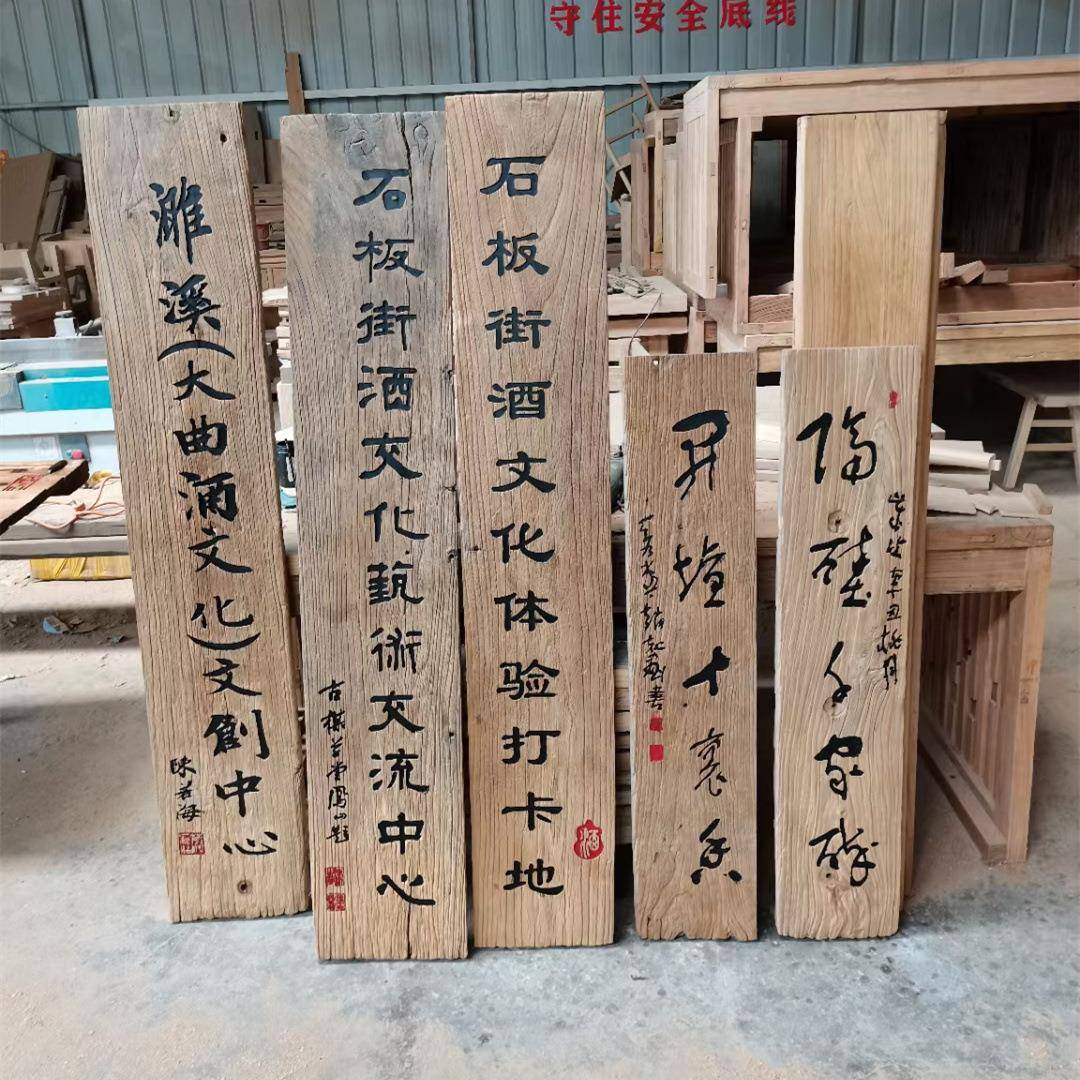 守住安全底线
濉溪(大曲酒文化)文創中心
陳若海
石板街酒文化藝術交流中心
石板街酒文化体验打卡地
酒
開壇十裏香
隔壁千家醉
辛丑桃月